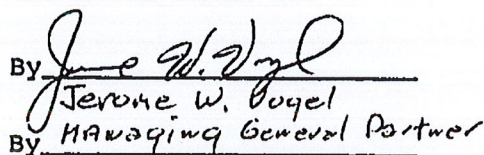 By Jerome W. Vogel
Jerome W. Vogel
By Managing General Partner